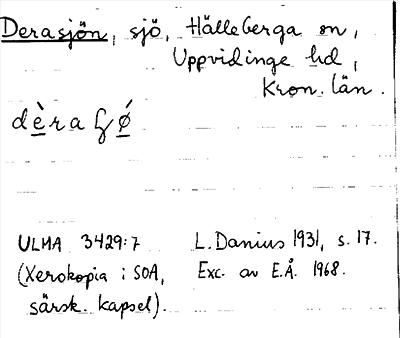 Derasjön, sjö, Hälleberga sn,
Uppvidinge hd,
Kron. län.
ULMA 3429:7
(Xerokopia i SOA,
särsk. kapsel).
L. Danius 1931, s. 17.
Exc. av E.Å. 1968.